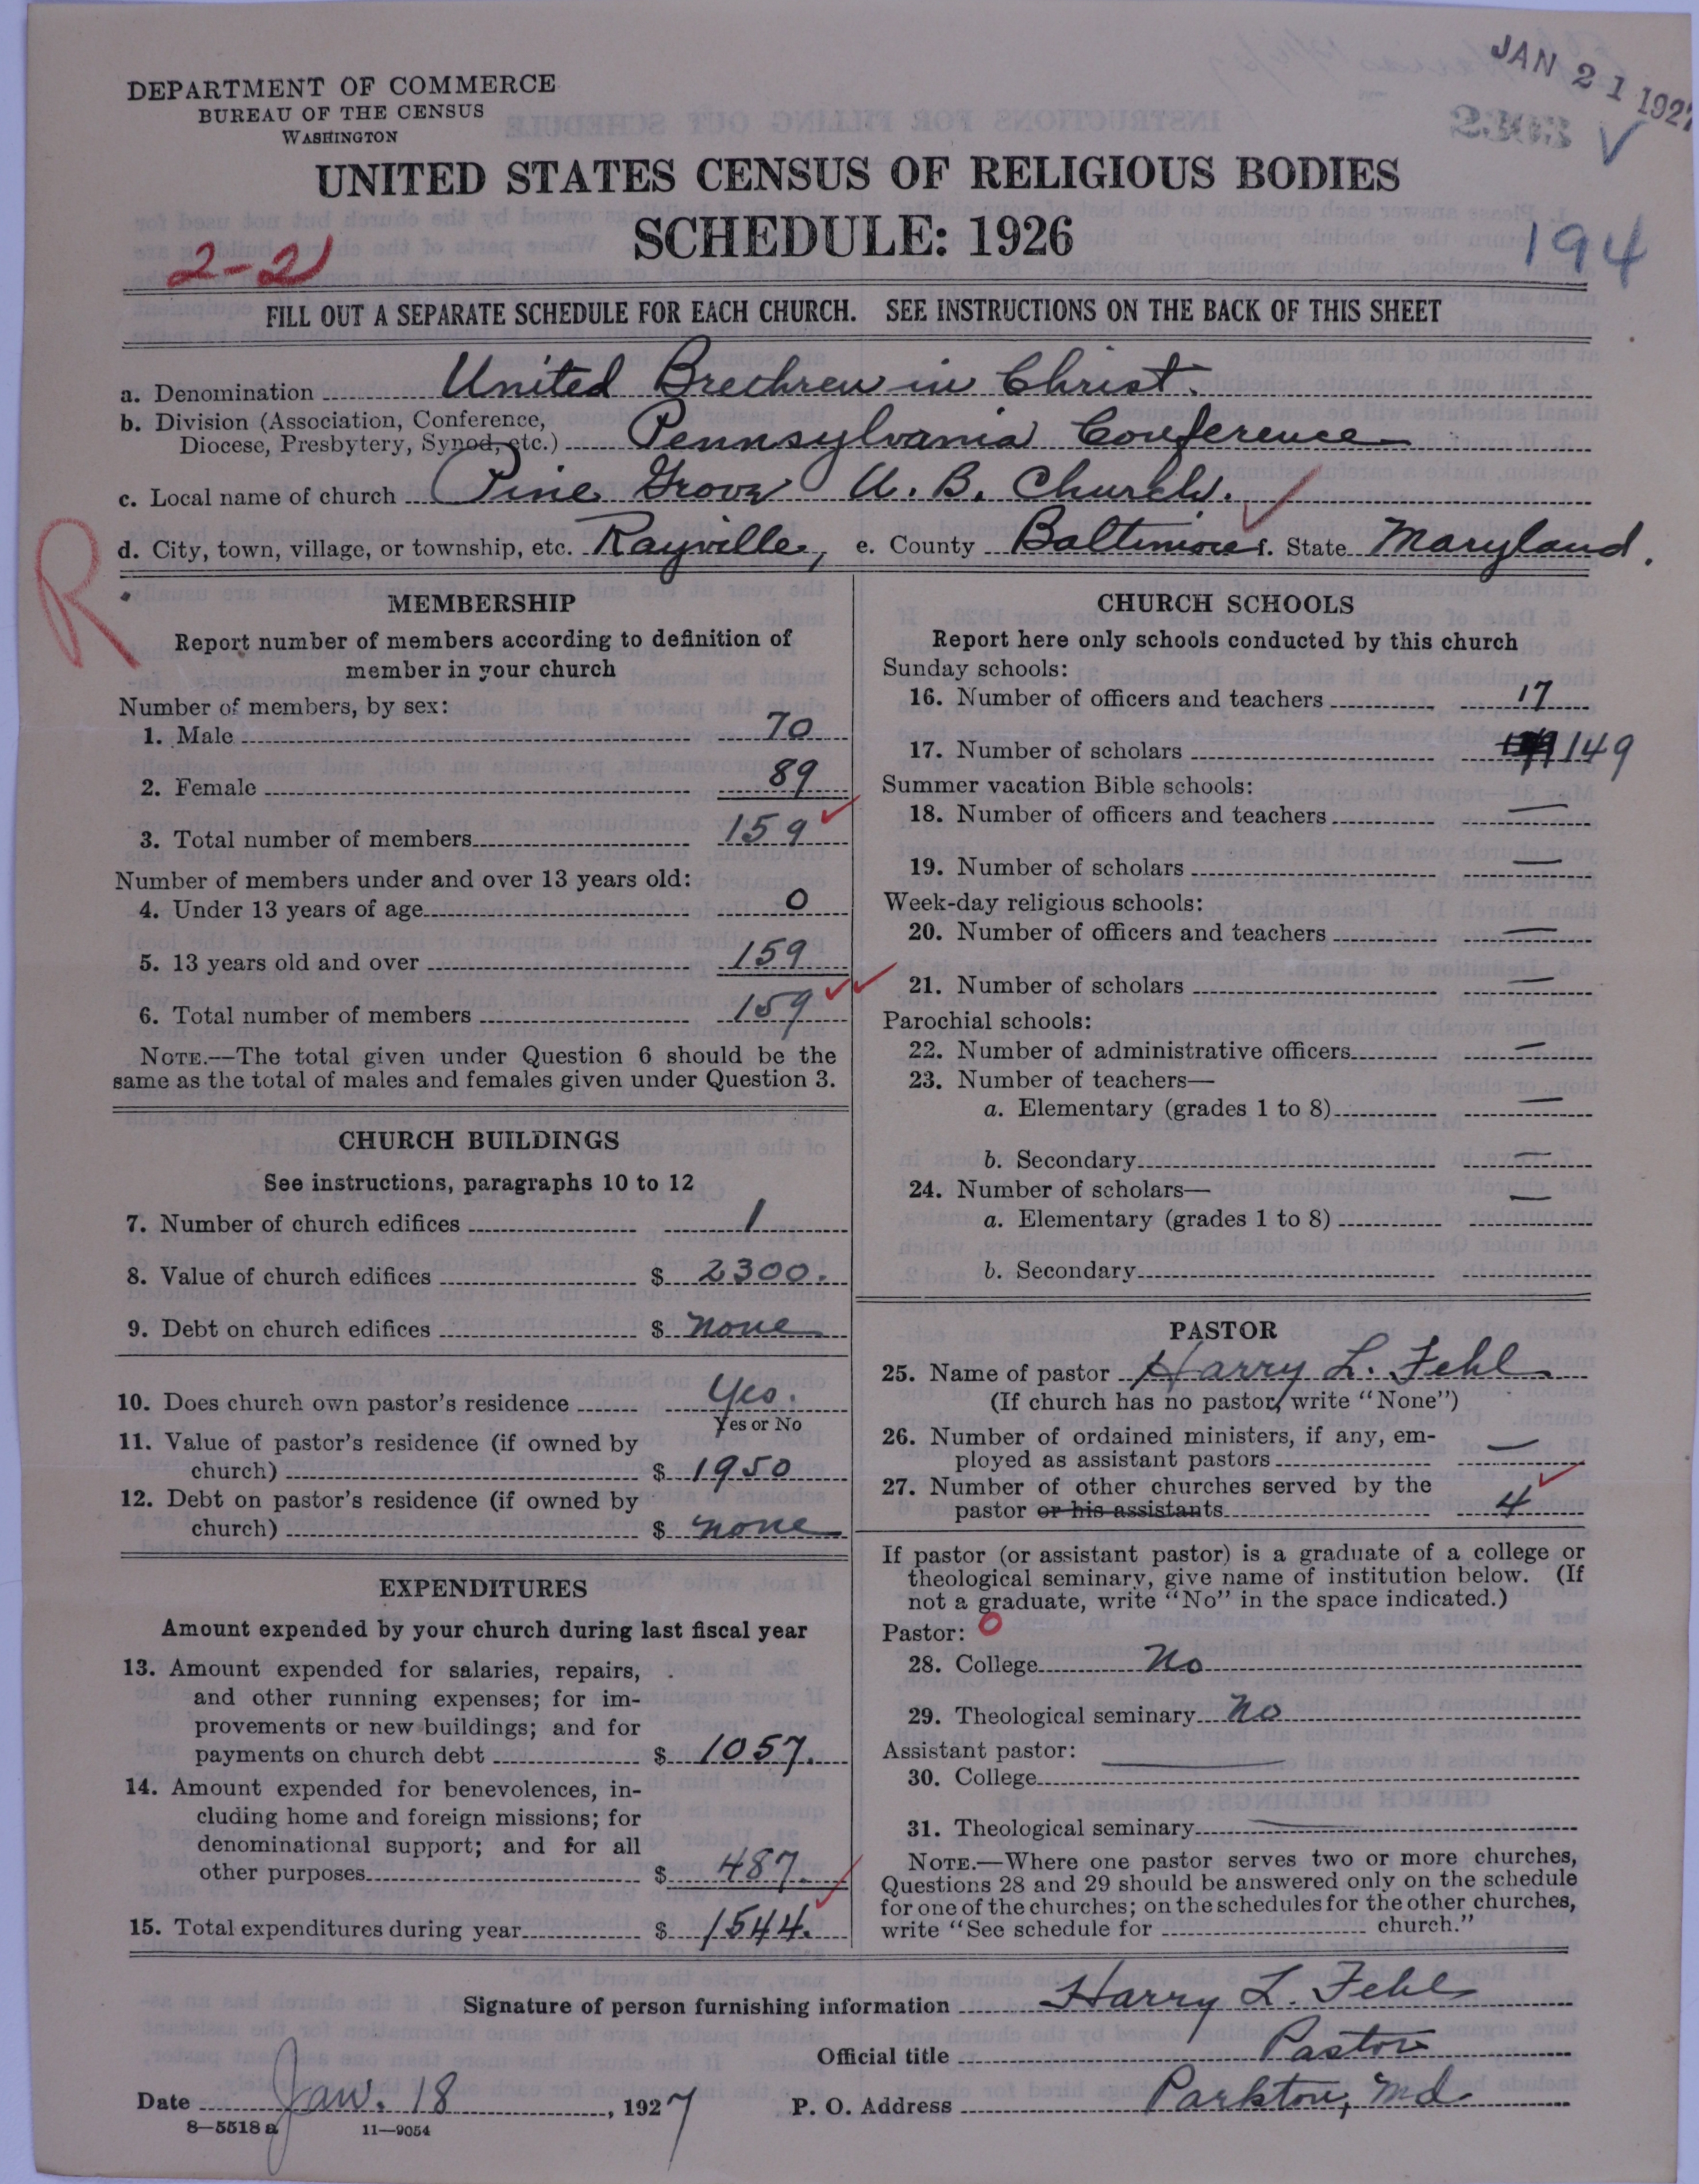 JAN 21 1927
DEPARTMENT OF COMMERCE
BUREAU OF THE CENSUS
WASHINGTON
UNITED STATES CENSUS OF RELIGIOUS BODIES
SCHEDULE: 1926
194
2-21
FILL OUT A SEPARATE SCHEDULE FOR EACH CHURCH. SEE INSTRUCTIONS ON THE BACK OF THIS SHEET
a. Denomination United Brethren in Christ.
b. Division (Association, Conference,
Diocese, Presbytery, Synod, etc.) Pennsylvania Conference
c. Local name of church Pine Grove U. B. Church.
d. City, town, village, or township, etc. Rayville, e. County Baltimore f. State Maryland.
R
MEMBERSHIP
Report number of members according to definition of
member in your church
Number of members, by sex:
1. Male 70
2. Female 89
3. Total number of members 159
Number of members under and over 13 years old:
4. Under 13 years of age 0
5. 13 years old and over 159
6. Total number of members 159
NOTE.—The total given under Question 6 should be the
same as the total of males and females given under Question 3.
CHURCH BUILDINGS
See instructions, paragraphs 10 to 12
7. Number of church edifices 1
8. Value of church edifices $ 2300.
9. Debt on church edifices $ none
10. Does church own pastor's residence Yes.
Yes or No
11. Value of pastor's residence (if owned by
church) $ 1950
12. Debt on pastor's residence (if owned by
church) $ none
EXPENDITURES
Amount expended by your church during last fiscal year
13. Amount expended for salaries, repairs,
and other running expenses; for im-
provements or new buildings; and for
payments on church debt $ 1057.
14. Amount expended for benevolences, in-
cluding home and foreign missions; for
denominational support; and for all
other purposes $ 487.
15. Total expenditures during year $ 1544.
CHURCH SCHOOLS
Report here only schools conducted by this church
Sunday schools:
16. Number of officers and teachers 17
17. Number of scholars 149
Summer vacation Bible schools:
18. Number of officers and teachers —
19. Number of scholars —
Week-day religious schools:
20. Number of officers and teachers —
21. Number of scholars —
Parochial schools:
22. Number of administrative officers —
23. Number of teachers—
a. Elementary (grades 1 to 8) —
b. Secondary —
24. Number of scholars—
a. Elementary (grades 1 to 8) —
b. Secondary
PASTOR
25. Name of pastor Harry L. Fehl
(If church has no pastor, write "None")
26. Number of ordained ministers, if any, em-
ployed as assistant pastors —
27. Number of other churches served by the
pastor or his assistants 4
If pastor (or assistant pastor) is a graduate of a college or
theological seminary, give name of institution below. (If
not a graduate, write "No" in the space indicated.)
Pastor: 0
28. College No
29. Theological seminary No
Assistant pastor:
30. College —
31. Theological seminary —
NOTE.—Where one pastor serves two or more churches,
Questions 28 and 29 should be answered only on the schedule
for one of the churches; on the schedules for the other churches,
write "See schedule for church."
Signature of person furnishing information Harry L. Fehl
Official title Pastor
Date Jan. 18, 1927 P. O. Address Parkton, Md.
8—5518 a 11—9054